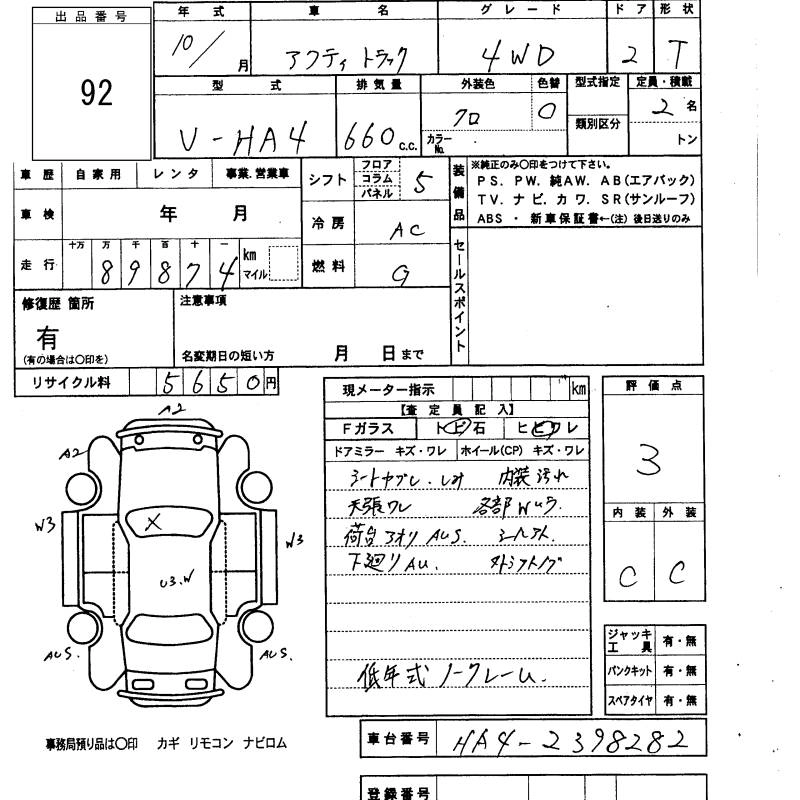 出品番号
92
年式 車名 グレード ドア 形状
10/ 月 アクティ トラック 4WD 2 T
型式 排気量 外装色 色替 型式指定 定員・積載
V-HA4 660 c.c. クロ 0 2 名
カラーNo. 類別区分 トン
車歴 自家用 レンタ 事業.営業車
シフト フロア コラム パネル 5
車検 年 月
冷房 AC
走行 十万 万 千 百 十 一
89874 km マイル
燃料 G
装備品
※純正のみ〇印をつけて下さい。
PS. PW. 純AW. AB(エアバック)
TV. ナビ. カワ. SR(サンルーフ)
ABS ・ 新車保証書←(注) 後日送りのみ
セールスポイント
修復歴 箇所
有
(有の場合は〇印を)
注意事項
名変期日の短い方 月 日まで
リサイクル料 5650円
現メーター指示 km
【査定員記入】
Fガラス トビ石 ヒビワレ
ドアミラー キズ・ワレ ホイール(CP) キズ・ワレ
シートヤブレ.シミ 内装汚れ
天張ワレ 各部WUラ.
荷台アオリ AUS.
下廻りAU. 外シフトノブ
低年式 ノークレーム.
評価点
3
内装 外装
C C
ジャッキ工具 有・無
パンクキット 有・無
スペアタイヤ 有・無
A2
A2
W3
W3
X
U3.W
AUS.
AUS.
事務局預り品は〇印 カギ リモコン ナビロム
車台番号 HA4-2398282
登録番号